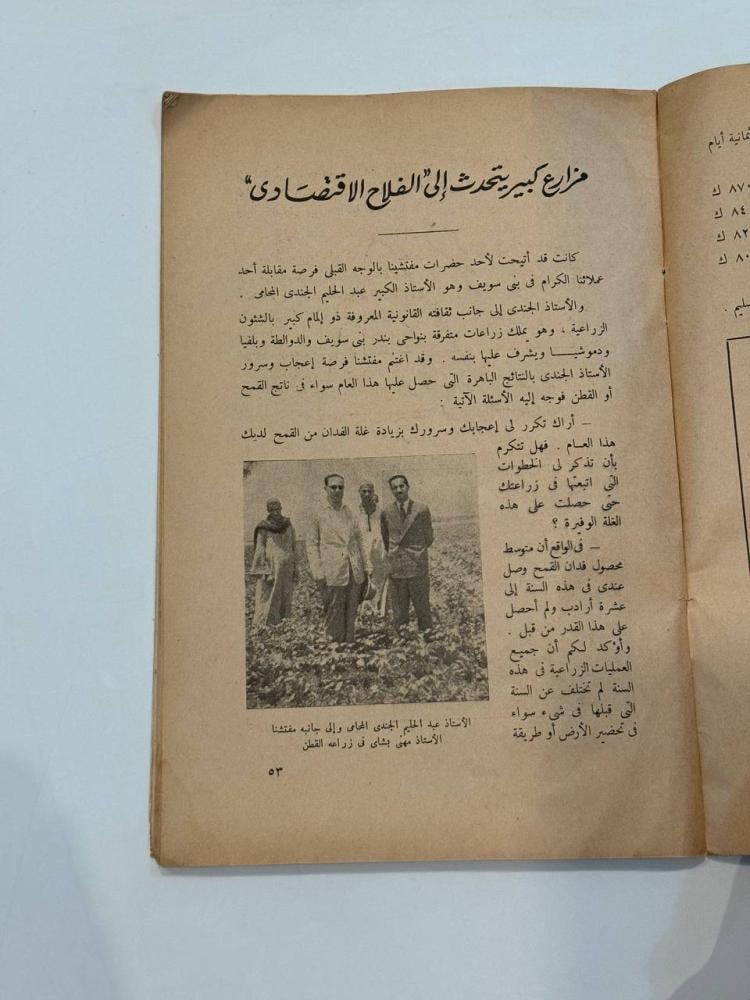 مزارع كبير يتحدث إلى "الفلاح الاقتصادى"
كانت قد أتيحت لأحد حضرات مفتشينا بالوجه القبلى فرصة مقابلة أحد
عملائنا الكرام فى بنى سويف وهو الأستاذ الكبير عبد الحليم الجندى المحامى .
والأستاذ الجندى إلى جانب ثقافته القانونية المعروفة ذو إلمام كبير بالشئون
الزراعية ، وهو يملك زراعات متفرقة بنواحى بندر بنى سويف والدوالطة وبلفيا
ودموشيـــا ويشرف عليها بنفسه . وقد اغتنم مفتشنا فرصة إعجاب وسرور
الأستاذ الجندى بالنتائج الباهرة التى حصل عليها هذا العام سواء فى ناتج القمح
أو القطن فوجه إليه الأسئلة الآتية :
— أراك تكرر لى إعجابك وسرورك بزيادة غلة الفدان من القمح لديك
هذا العـام . فهل تتكرم
بأن تذكر لى الخطوات
التى اتبعتها فى زراعتك
حتى حصلت على هذه
الغلة الوفيرة ؟
— فى الواقع أن متوسط
محصول فدان القمح وصل
عندى فى هذه السنة إلى
عشرة أرادب ولم أحصل
على هذا القدر من قبل .
وأؤكد لكم أن جميع
العمليات الزراعية فى هذه
السنة لم تختلف عن السنة
التى قبلها فى شىء سواء
فى تحضير الأرض أو طريقة
الأستاذ عبد الحليم الجندى المحامى وإلى جانبه مفتشنا
الأستاذ مهنى بشاى فى زراعه القطن
٥٣
ثمانية أيام
٨٧٠ ك
٨٤ ك
٨٢ ك
٨٠ ك